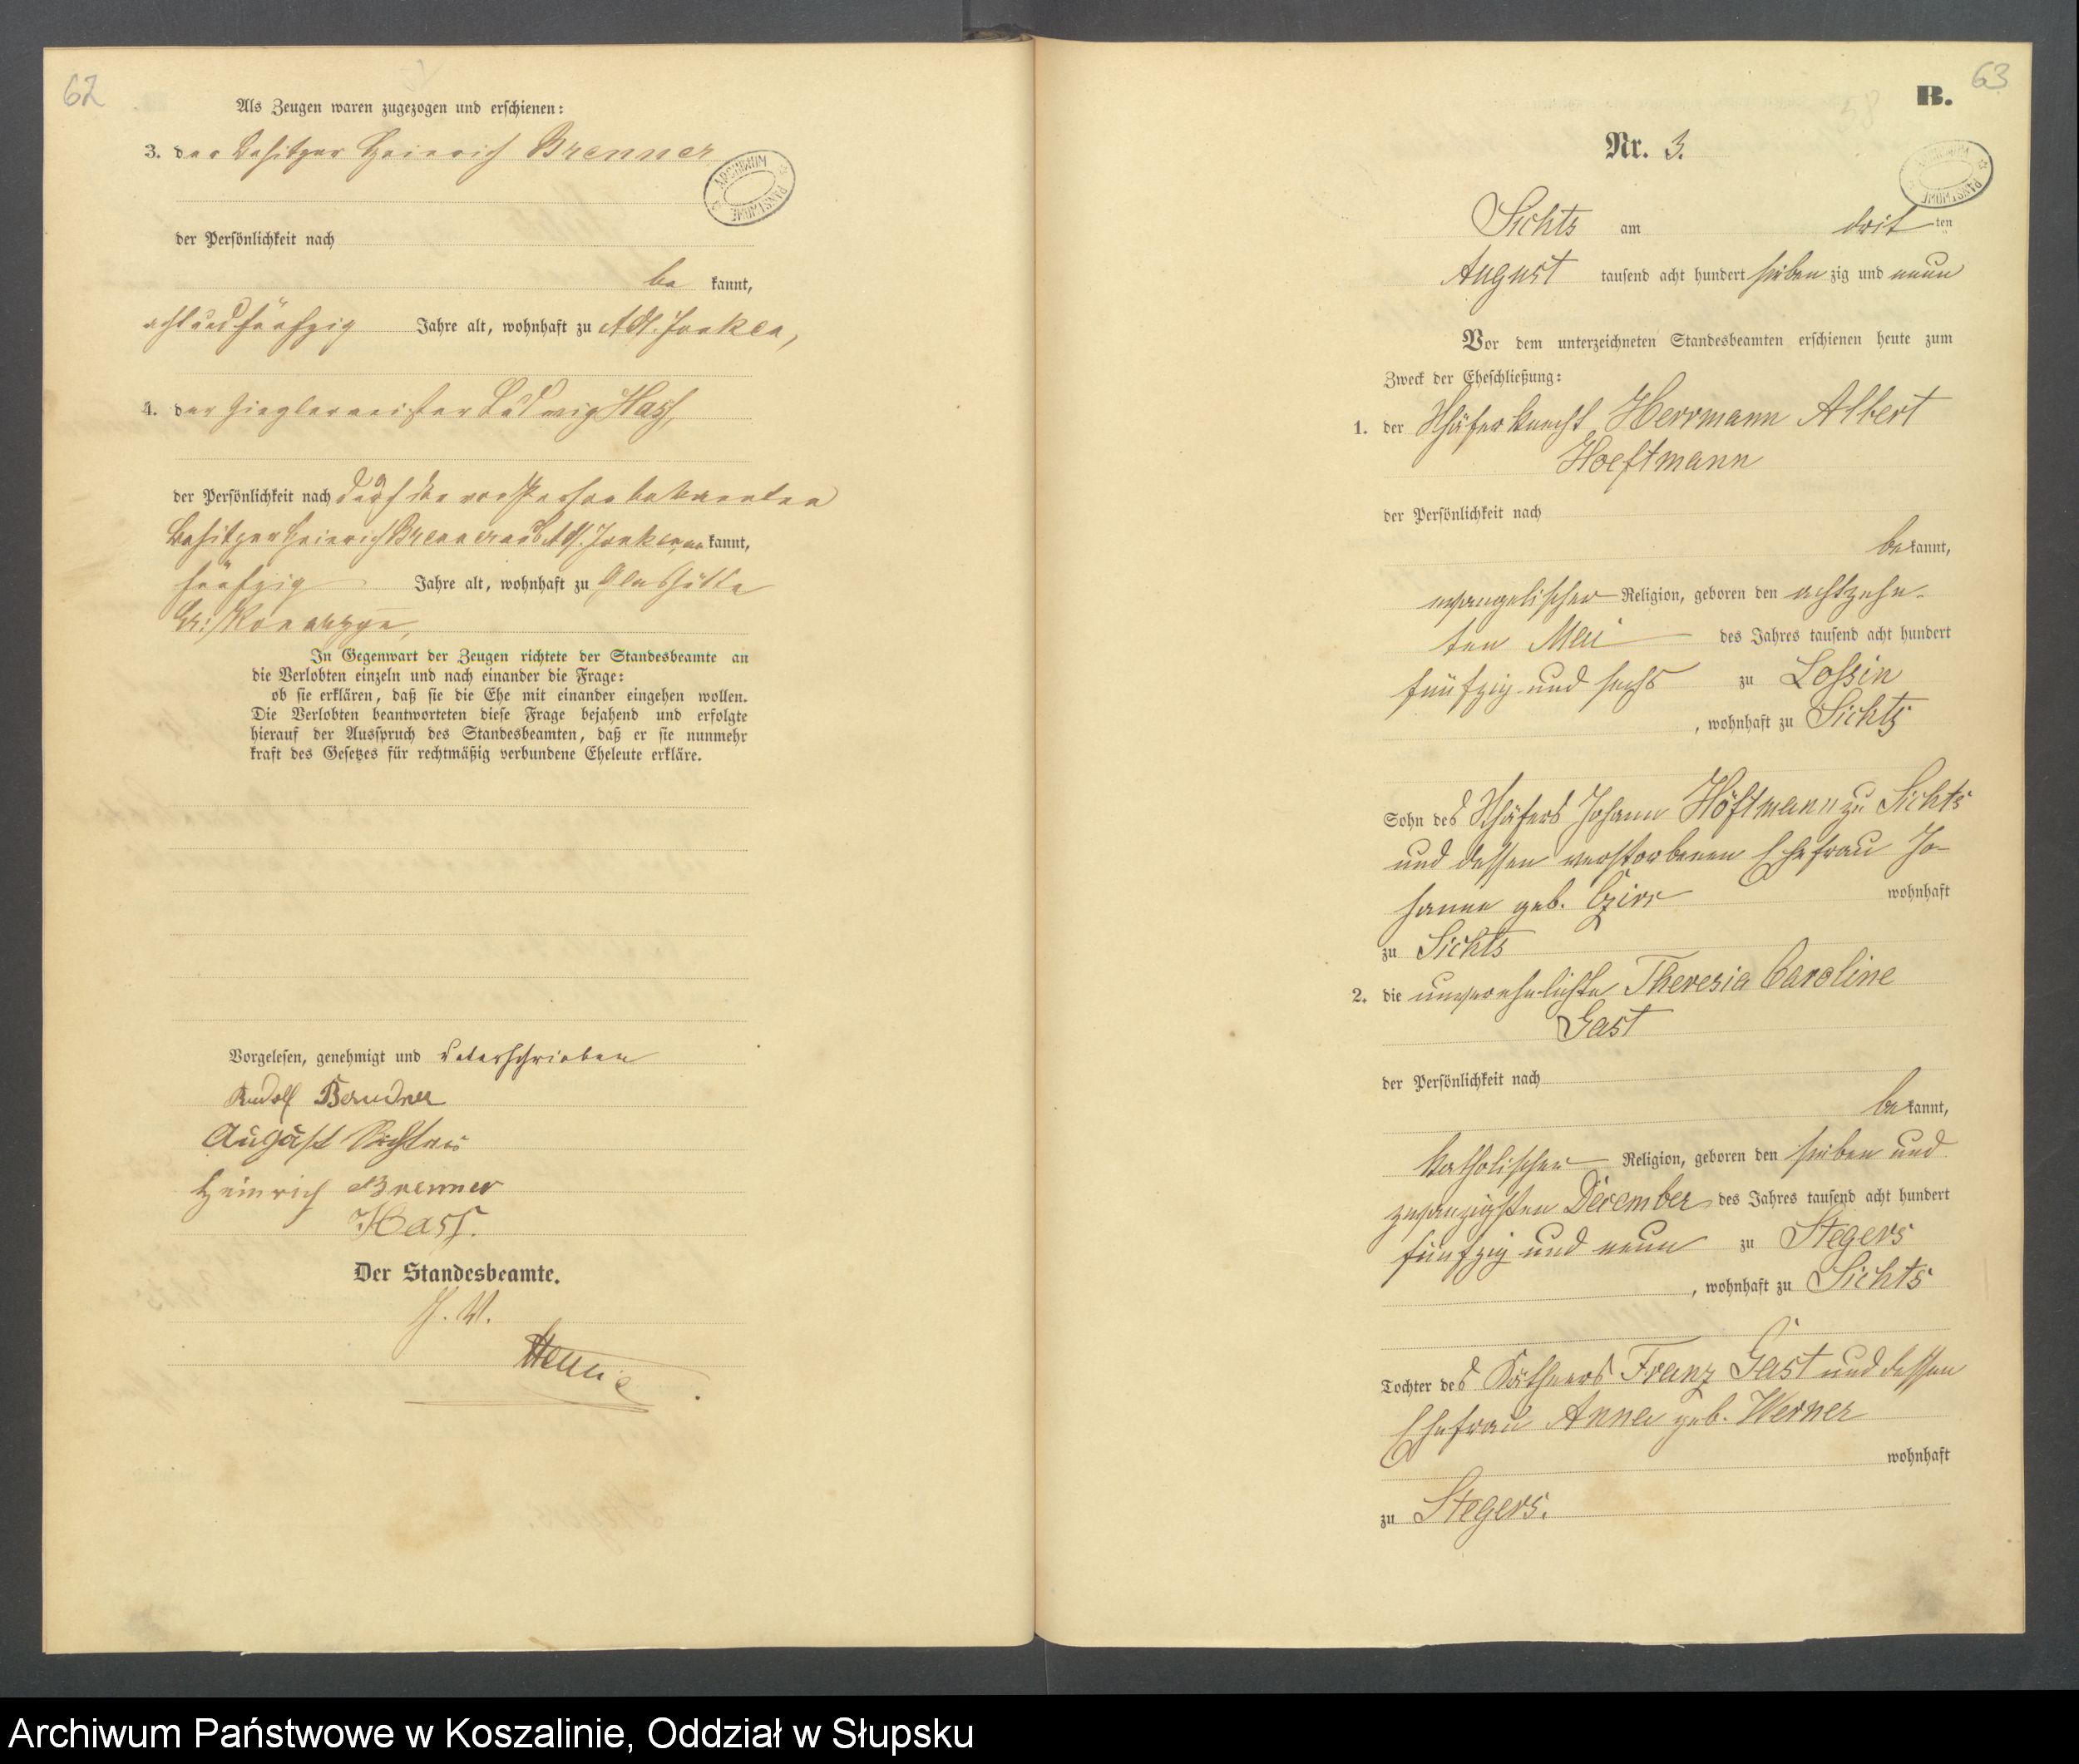 62
Als Zeugen waren zugezogen und erschienen:
3. der Besitzer Heinrich Brenner
ARCHIWUM PAŃSTWOWE
der Persönlichkeit nach
be kannt,
achtundfünfzig Jahre alt, wohnhaft zu Adl. Jonken,
4. der Zieglermeister Ludwig Hass,
der Persönlichkeit nach durch den von Person bekannten
Besitzer Heinrich Brenner aus Adl. Jonken kannt,
fünfzig Jahre alt, wohnhaft zu Glashütte
In Gegenwart der Zeugen richtete der Standesbeamte an
die Verlobten einzeln und nach einander die Frage:
ob sie erklären, daß sie die Ehe mit einander eingehen wollen.
Die Verlobten beantworteten diese Frage bejahend und erfolgte
hierauf der Ausspruch des Standesbeamten, daß er sie nunmehr
kraft des Gesetzes für rechtmäßig verbundene Eheleute erkläre.
Vorgelesen, genehmigt und unterschrieben
Rudolf
August Richter
Heinrich Brenner
Hass.
Der Standesbeamte.
J. V.
63
B.
58
Nr. 3.
ARCHIWUM PAŃSTWOWE
Sichts am drit ten
August tausend acht hundert sieben zig und neun
Vor dem unterzeichneten Standesbeamten erschienen heute zum
Zweck der Eheschließung:
1. der Schäferknecht Herrmann Albert
Hoeftmann
der Persönlichkeit nach
be kannt,
evangelischer Religion, geboren den achtzehn-
ten Mai des Jahres tausend acht hundert
fünfzig und sechs zu Lossin
, wohnhaft zu Sichts
Sohn des Schäfers Johann Höftmann zu Sichts
und dessen verstorbenen Ehefrau Jo-
hanne geb. Czirr wohnhaft
zu Sichts
2. die unverehelichte Theresia Caroline
Gast
der Persönlichkeit nach
be kannt,
katholischer Religion, geboren den sieben und
zwanzigsten December des Jahres tausend acht hundert
fünfzig und neun zu Stegers
, wohnhaft zu Sichts
Tochter des Käthners Franz Gast und dessen
Ehefrau Anna geb. Werner
wohnhaft
zu Stegers.
Archiwum Państwowe w Koszalinie, Oddział w Słupsku